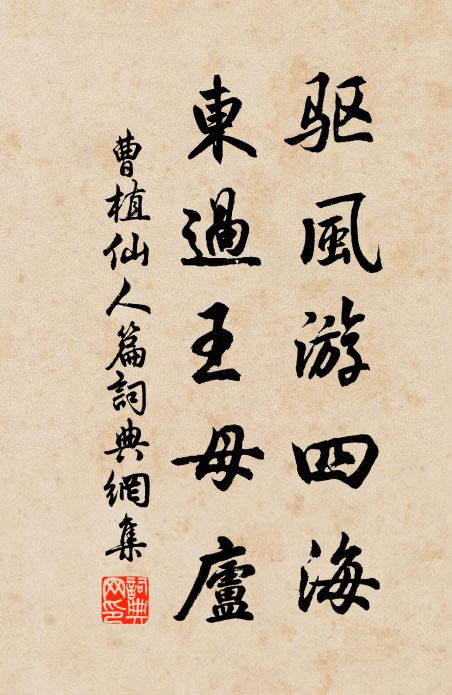 驱風游四海
東過王母廬
曹植仙人篇詞典網集
詞典
网印